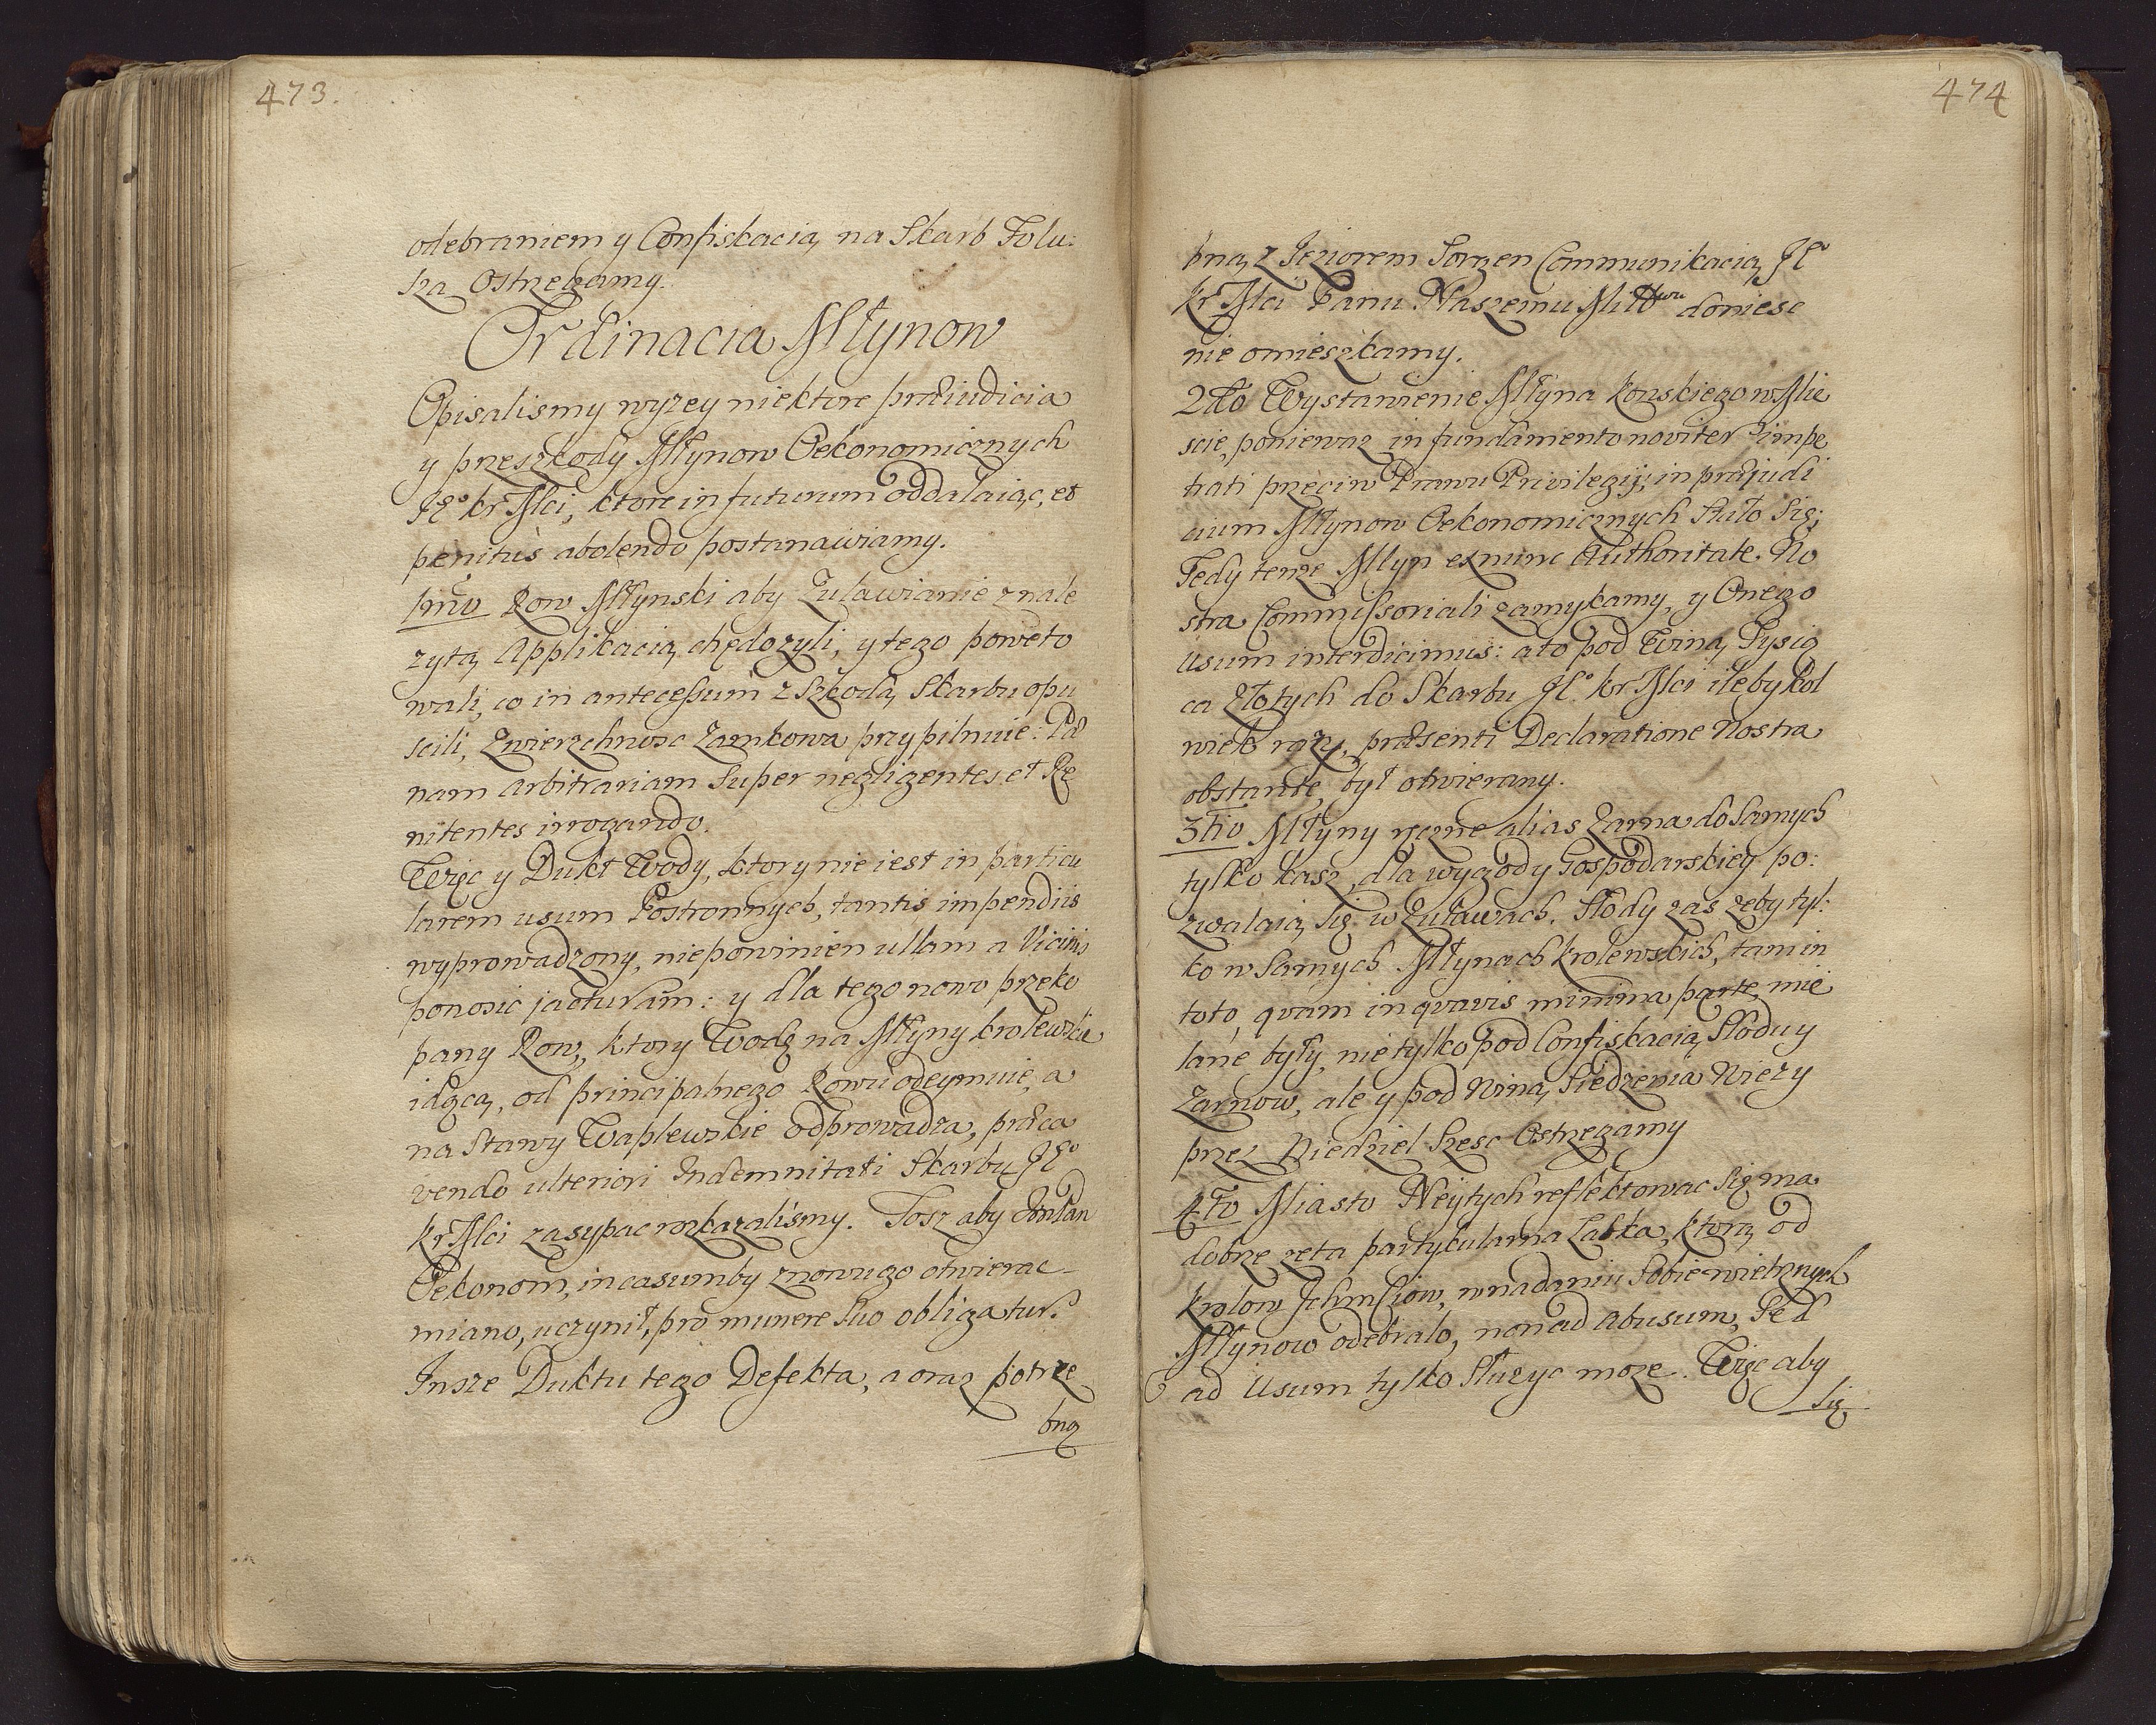 473.
odebraniem y Confiskacią na Skarb Folu:
sza Ostrzegamy.
Ordinacia Młynow
Opisalismy wyzey niektore præiudicia
y przeszkody Młynow Oekonomicznych
JE° kr Mci, ktore in futurum oddalaiąc, et
penitus abolendo postanawiamy.
pmo Row Młynski aby Zuławianie z nale
zytą Applikacią chędozyli, y tego poweto
wali, co in antecessum z Szkodą Skarbu opu
scili, Zwierzchnosc Zamkowa przypilnuie. Pæ
nam arbitrariam super negligentes et Re
nitentes irrogando.
Więc y Dukt Wody, ktory nie iest in particu
larem usum Postronnych, tantis impendiis
wyprowadzony, niepowinien ullam a Vicinis
ponosic jacturam: y dla tego nowo przeko
pany Row, ktory Wodę na Młyny krolewskie
idącą, od principalnego Rowu odeymuie, a
na Stawy Waplewskie odprowadza, præca
vendo ulteriori Indemnitati Skarbu JE°
kr Mci zasypac rozkazalismy. Tosz aby Pan
Oekonom, in casum by znowu go otwierac
miano, uczynił, pro munere suo obligatur.
Insze Duktu tego Defekta, a oraz potrze
bną
474
bną z Jeziorem Sorgen Communikacią JE°
kr Mci Panu Naszemu Miłłwu doniesc
nie omieszkamy.
2do Wystawienie Młyna konskiego w Mie
scie, poniewaz in fundamento noviter impe
trati przeciw Prawu Privilegij, in præjudi
cium Młynow Oekonomicznych Stało Się;
Tedy tenze Młyn ex nunc Authoritate No
stra Commissoriali zamykamy, y Onego
Usum interdicimus: a to pod Winą Tysią
ca Złotych do Skarbu JE° kr Mci ileby kol
wiek razy, præsenti Declaratione Nostra
obstante, był otwierany.
3tio Młyny ręczne alias Zarna do Samych
tylko kasz, dla wygody Gospodarskiey po:
zwalaią się w Zuławach. Słody zas zeby tyl:
ko w Samych Młynach krolewskich, tam in
toto, quam in quavis minima parte, mie
lane były, nie tylko pod Confiskacią Słodu y
Zarnow, ale y pod Winą Siedzenia Wiezy
przez Niedziel Szesc Ostrzegamy
4to Miasto Neÿtych reflektowac Się ma
dobrze, ze ta partykularna Łaska, ktorą od
krolow Jchmsciow, w nadaniu Sobie wietrznych
Młynow odebrało, non ad Abusum, Sed
ad Usum tylko Słuzyc moze. Więc aby
Się